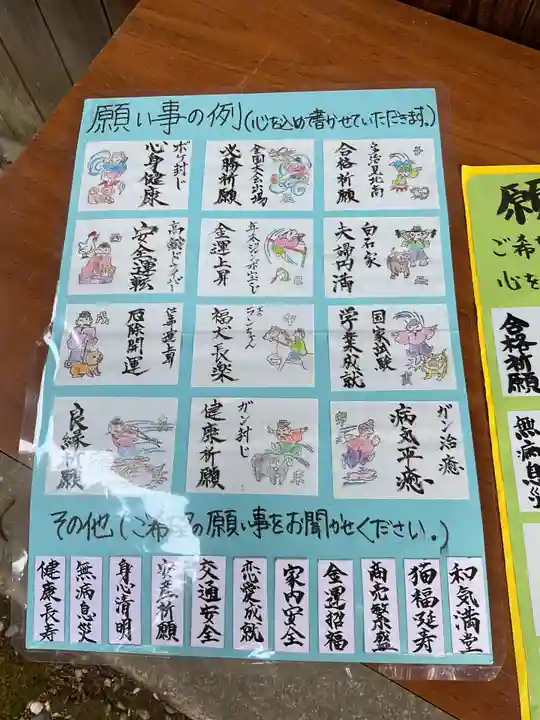 願い事の例(心を込めて書かせていただきます。)
合格祈願
全国大会出場
必勝祈願
ボケ封じ
心身健康
白石家
夫婦円満
金運上昇
高齢ドライバー
安全運転
国家試験
学業成就
犬のランちゃん
福犬長楽
運上昇
厄除開運
ガン治癒
病気平癒
ガン封じ
健康祈願
良縁祈願
その他(ご希望の願い事をお聞かせください。)
和気満堂
猫福延寿
商売繁盛
金運招福
家内安全
恋愛成就
交通安全
安産祈願
身心清明
無病息災
健康長寿
願
ご希
心を
合格祈願
無病息災